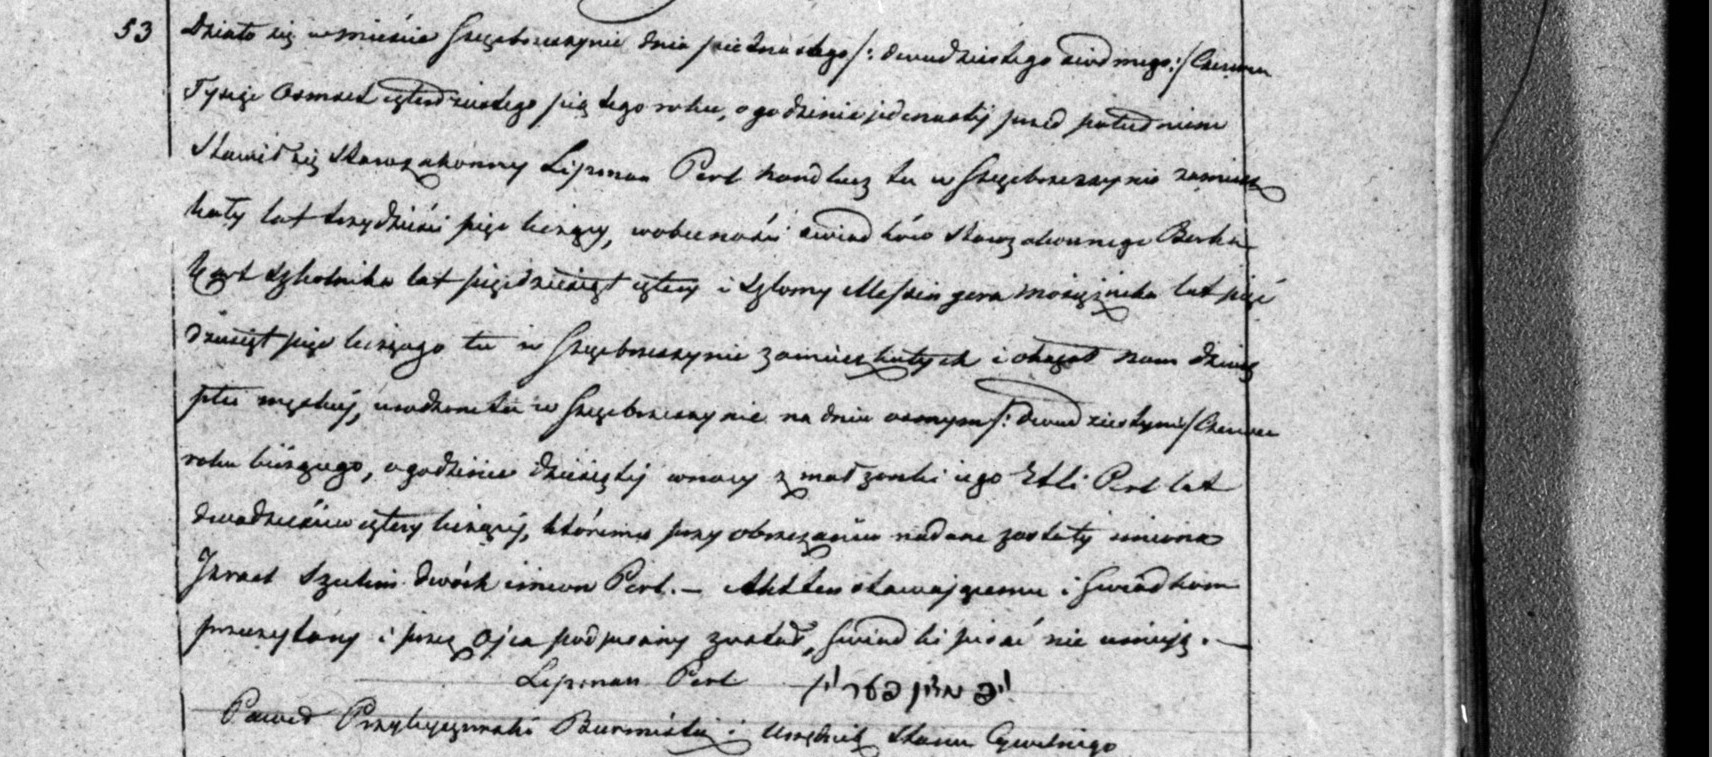 53 Działo się w mieście Szczebrzeszynie dnia piętnastego /: dwudziestego siódmego :/ Czerwca
Tysiąc Osmset czterdziestego piątego roku, o godzinie jedenastej przed południem
Stawił się Starozakonny Lipman Perl handlarz tu w Szczebrzeszynie zamiesz
kały lat trzydzieści pięć liczący, w obecności świadków Starozakonnego Berka
szkolnika lat pięćdziesiąt cztery i Szlomy lat pięć
dziesiąt pięć liczącego tu w Szczebrzeszynie zamieszkałych i okazał nam dziecię
płci męskiej, urodzone tu w Szczebrzeszynie na dniu osmym /: dwudziestym :/ Czerwca
roku bieżącego, o godzinie dziesiątej w nocy z małżonki iego Etli Perl lat
dwadzieścia cztery liczącej, któremu przy obrzezaniu nadane zostały imiona
Izrael Szulim dwóch imion Perl. — Akt ten stawającemu i Świadkom
przeczytany i przez Ojca podpisany został, Świadki pisać nie umieją. —
Lipman Perl ליפמאן פערל
Paweł Burmistrz i Urzędnik Stanu Cywilnego